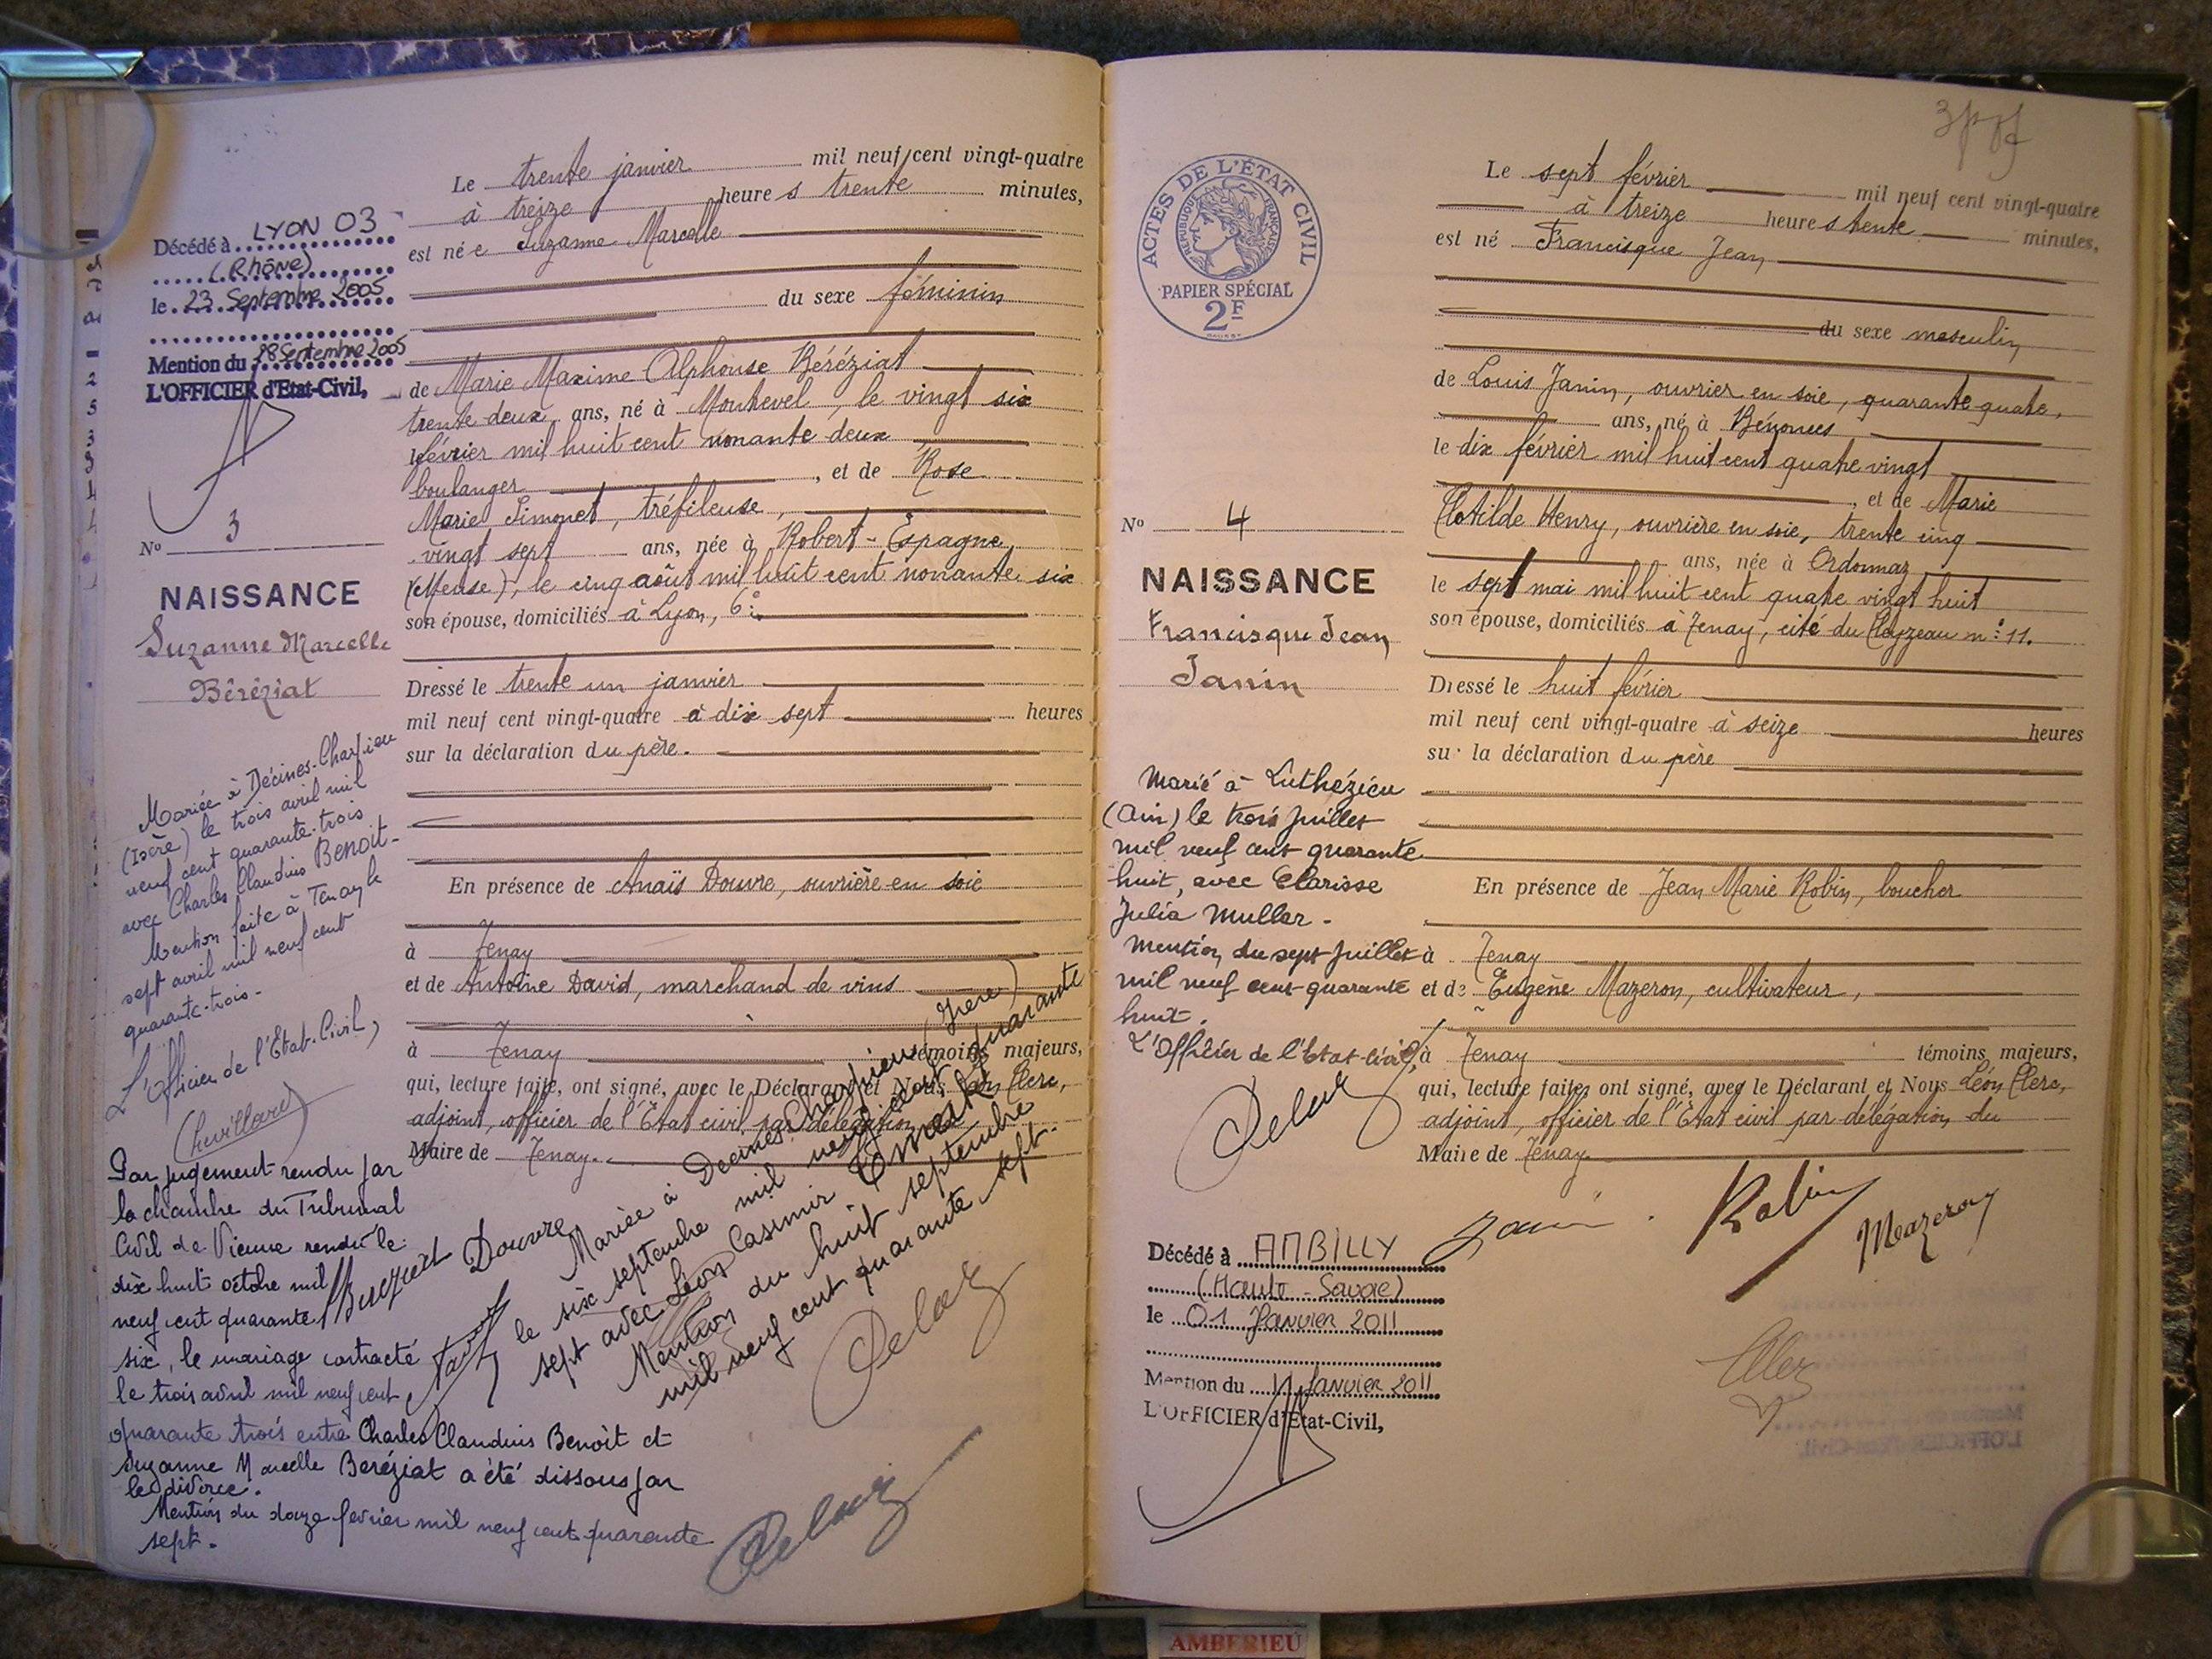 Le trente janvier mil neuf cent vingt-quatre
à treize heures trente minutes,
est née Suzanne Marcelle
du sexe féminin
de Marie Maxime Alphonse Béréziat
trente-deux ans, né à Montrevel, le vingt six
février mil huit cent nonante deux
boulanger, et de Rose
Marie Simonet, tréfileuse,
vingt sept ans, née à Robert-Espagne
(Meuse), le cinq août mil huit cent nonante six
son épouse, domiciliés à Lyon, 6e
Dressé le trente un janvier
mil neuf cent vingt-quatre à dix sept heures
sur la déclaration du père.
En présence de Anaïs Douvre, ouvrière en soie
à Tenay
et de Antoine David, marchand de vins
à Tenay témoins majeurs,
qui, lecture faite, ont signé, avec le Déclarant et Nous Léon Clerc,
adjoint, officier de l'Etat civil par délégation du
Maire de Tenay.
Décédé à LYON 03
(Rhône)
le 23 Septembre 2005
Mention du 28 Septembre 2005
L'OFFICIER d'Etat-Civil,
No 3
NAISSANCE
Suzanne Marcelle
Béréziat
Mariée à Décines-Charpieu
(Isère) le trois avril mil
neuf cent quarante-trois
avec Charles Claudius BENOIT-
Mention faite à Tenay le
sept avril mil neuf cent
quarante-trois-
L'Officier de l'Etat-Civil,
Chevillard
Par jugement rendu par
la chambre du Tribunal
Civil de Vienne rendu le
dix huit octobre mil
neuf cent quarante
six, le mariage contracté
le trois avril mil neuf cent
quarante trois entre Charles Claudius Benoit et
Suzanne Marcelle Beréziat a été dissous par
le divorce.
Mention du douze février mil neuf cent quarante
sept.
Douvre
Mariée à Decines Charpieu (Isère)
le six septembre mil neuf cent quarante
sept avec Léon Casimir
Mention du huit septembre
mil neuf cent quarante sept.
Le sept février mil neuf cent vingt-quatre
à treize heures trente minutes,
est né Francisque Jean
du sexe masculin
de Louis Janin, ouvrier en soie, quarante quatre,
ans, né à Bénonces
le dix février mil huit cent quatre vingt
, et de Marie
Clotilde Henry, ouvrière en soie, trente cinq
ans, née à Ordonnaz
le sept mai mil huit cent quatre vingt huit
son épouse, domiciliés à Tenay, cité du Cleyzeau n° 11.
Dressé le huit février
mil neuf cent vingt-quatre à seize heures
sur la déclaration du père
En présence de Jean Marie Robin, boucher
à Tenay
et de Eugène Mazeron, cultivateur,
à Tenay témoins majeurs,
qui, lecture faite, ont signé, avec le Déclarant et Nous Léon Clerc,
adjoint, officier de l'Etat civil par délégation du
Maire de Tenay
Janin Robin Mazeron
ACTES DE L'ÉTAT CIVIL
RÉPUBLIQUE FRANÇAISE
PAPIER SPÉCIAL
2F
No 4
NAISSANCE
Francisque Jean
Janin
Marié à Luthézieu
(Ain) le trois Juillet
mil neuf cent quarante
huit, avec Clarisse
Julia Muller -
Mention du sept Juillet
mil neuf cent quarante
huit.
L'Officier de l'Etat-civil,
Décédé à AMBILLY
(Haute-Savoie)
le 01 Janvier 2011
Mention du 11 Janvier 2011
L'OFFICIER d'Etat-Civil,
AMBERIEU